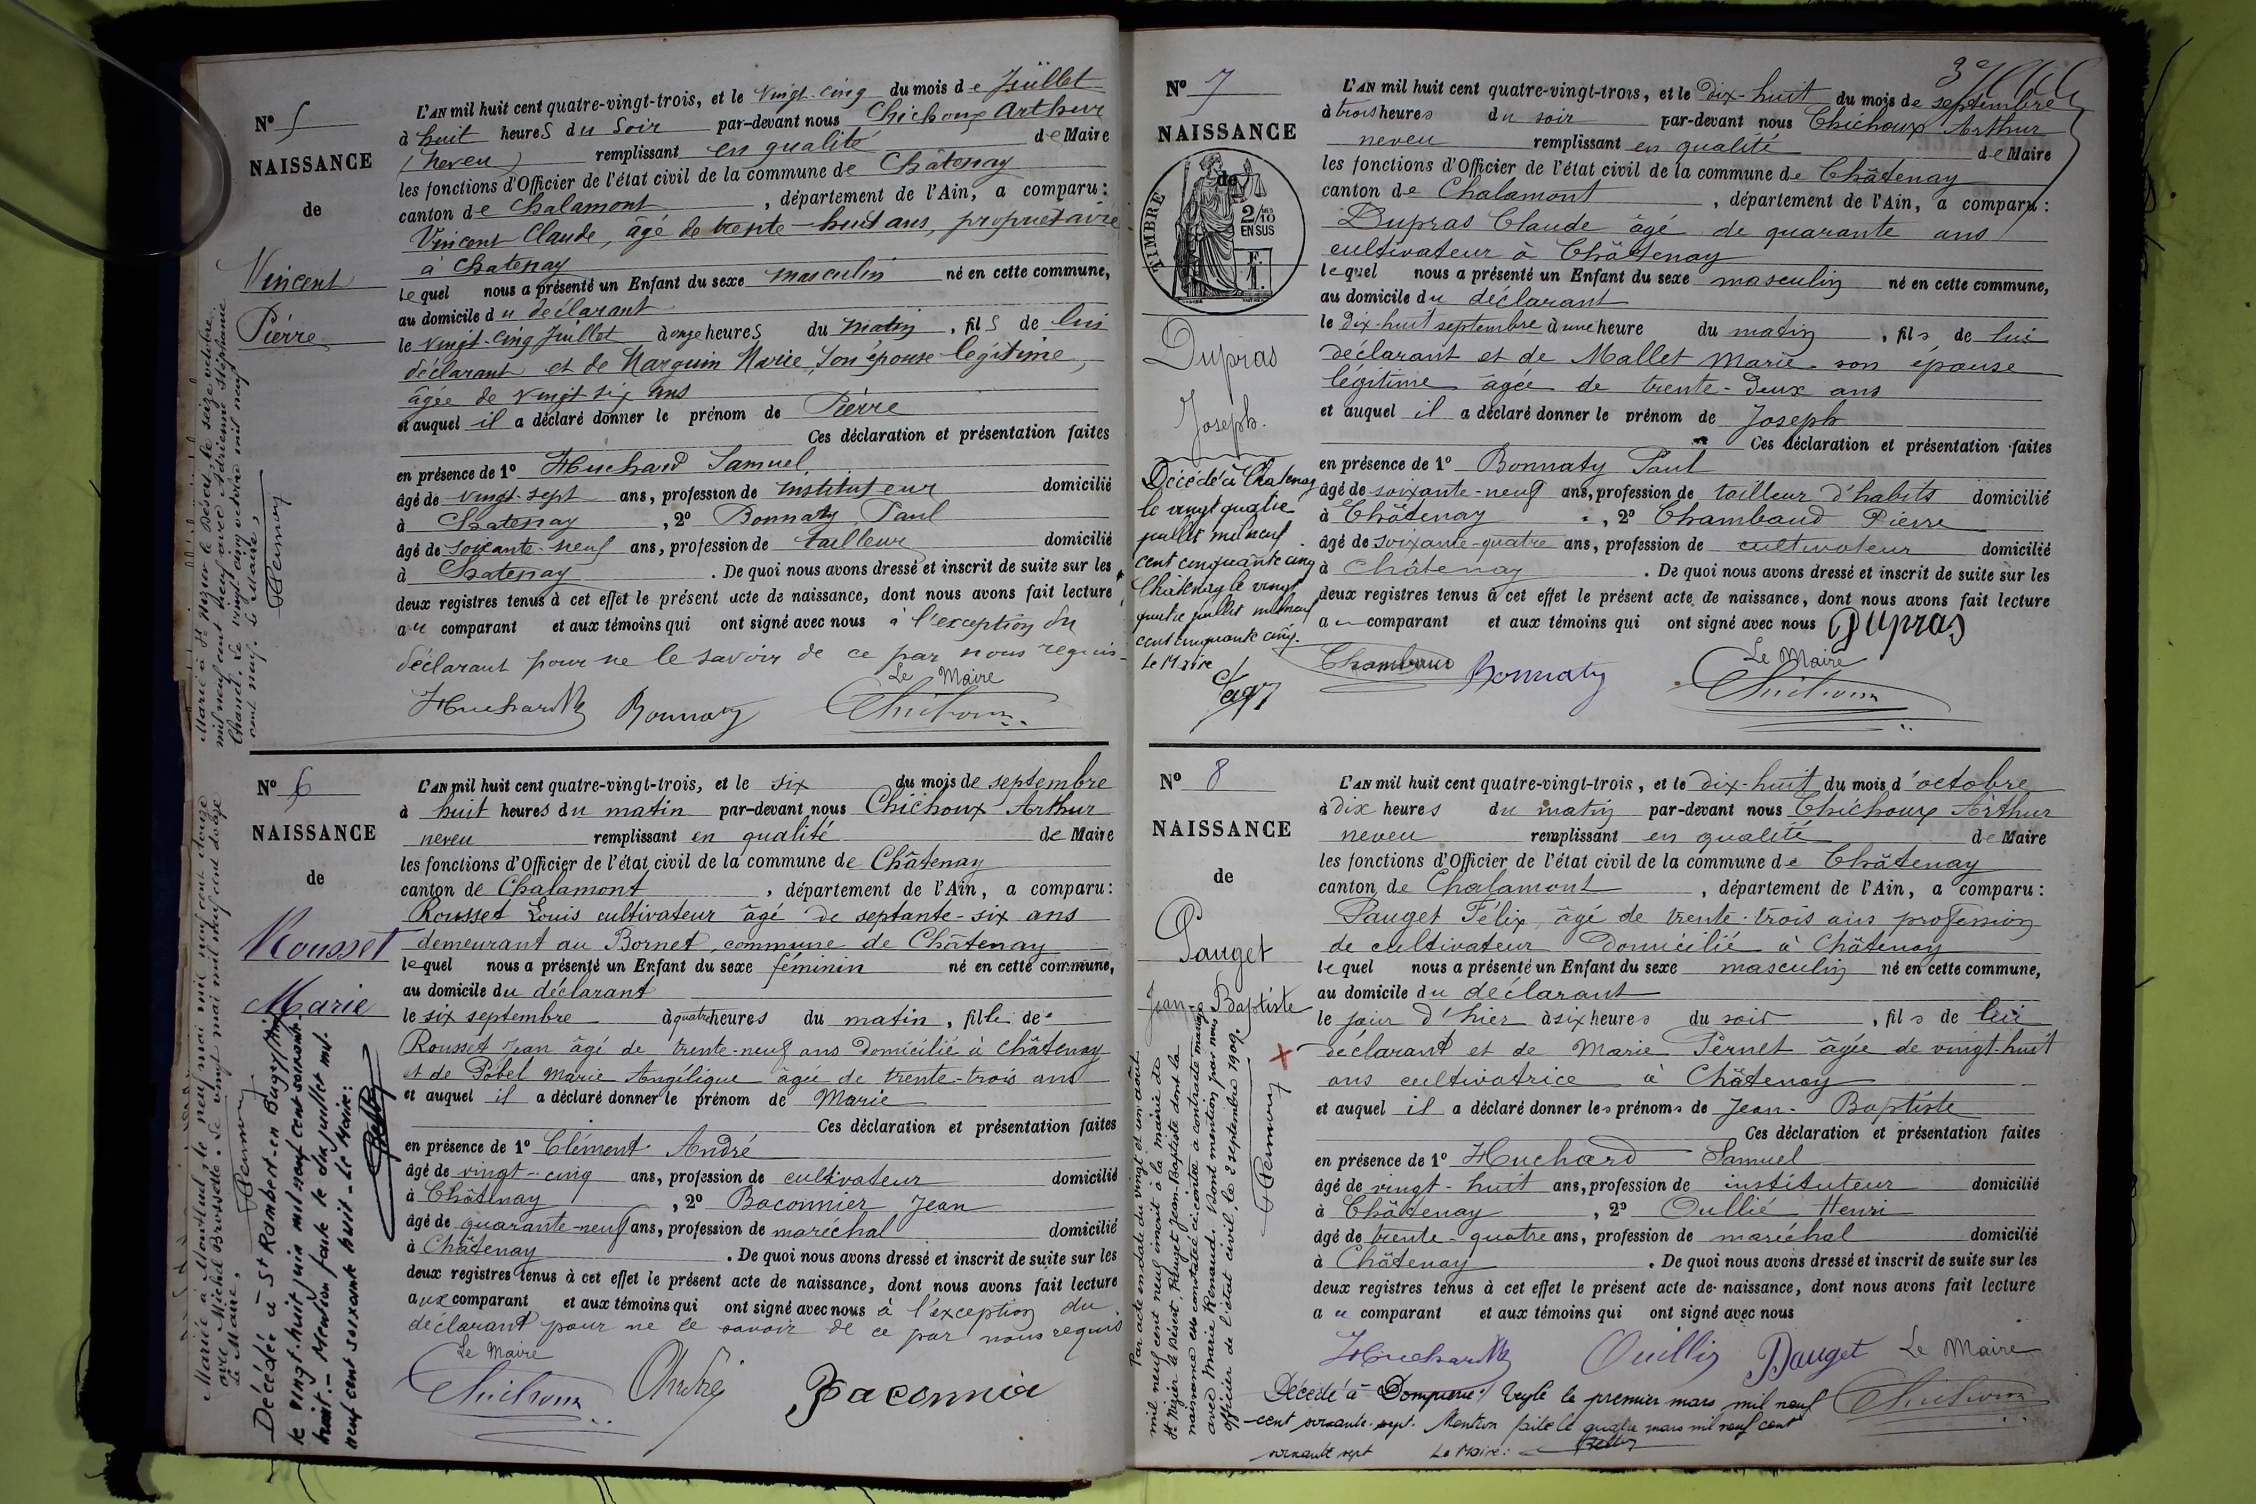 N° 5
NAISSANCE
de
Vincent
Pierre
L'AN mil huit cent quatre-vingt-trois, et le vingt-cinq du mois de Juillet
à huit heures du soir par-devant nous Chichoux Arthur
(neveu) remplissant en qualité de Maire
les fonctions d'Officier de l'état civil de la commune de Châtenay
canton de Chalamont, département de l'Ain, a comparu:
Vincent Claude, âgé de trente-huit ans, propriétaire
à Chatenay
lequel nous a présenté un Enfant du sexe masculin né en cette commune,
au domicile du déclarant
le vingt-cinq Juillet à onze heures du matin, fils de lui
déclarant et de Marguin Marie, son épouse légitime,
âgée de vingt six ans
et auquel il a déclaré donner le prénom de Pierre
Ces déclaration et présentation faites
en présence de 1° Huchard Samuel
âgé de vingt-sept ans, profession de instituteur domicilié
à Chatenay, 2° Bonnaty Paul
âgé de soixante-neuf ans, profession de tailleur domicilié
à Chatenay. De quoi nous avons dressé et inscrit de suite sur les
deux registres tenus à cet effet le présent acte de naissance, dont nous avons fait lecture
au comparant et aux témoins qui ont signé avec nous à l'exception du
déclarant pour ne le savoir de ce par nous requis.
Le Maire
Huchard Bonnaty Chichoux
Marié à St Nizier le Désert, le seize octobre
mil neuf cent neuf avec Adrienne Stéphanie
Chanel. Le vingt cinq octobre mil neuf
cent neuf. Le Maire,
N° 6
NAISSANCE
de
Rousset
Marie
L'AN mil huit cent quatre-vingt-trois, et le six du mois de septembre
à huit heures du matin par-devant nous Chichoux Arthur
neveu remplissant en qualité de Maire
les fonctions d'Officier de l'état civil de la commune de Châtenay
canton de Chalamont, département de l'Ain, a comparu:
Rousset Louis cultivateur âgé de septante-six ans
demeurant au Bornet, commune de Châtenay
lequel nous a présenté un Enfant du sexe féminin né en cette commune,
au domicile du déclarant
le six septembre à quatre heures du matin, fille de
Rousset Jean âgé de trente-neuf ans domicilié à Châtenay
et de Pobel Marie Angélique âgée de trente-trois ans
et auquel il a déclaré donner le prénom de Marie
Ces déclaration et présentation faites
en présence de 1° Clément André
âgé de vingt-cinq ans, profession de cultivateur domicilié
à Châtenay, 2° Baconnier Jean
âgé de quarante-neuf ans, profession de maréchal domicilié
à Châtenay. De quoi nous avons dressé et inscrit de suite sur les
deux registres tenus à cet effet le présent acte de naissance, dont nous avons fait lecture
aux comparant et aux témoins qui ont signé avec nous à l'exception du
déclarant pour ne le savoir de ce par nous requis
Le Maire
Chichoux André Baconnier
Mariée à Montluel, le neuf mai mil neuf cent douze
avec Michel Brossette. Le vingt mai mil neuf cent douze
Le Maire,
Décédée à St Rambert-en Bugey (Ain)
le vingt-huit juin mil neuf cent soixante
huit.- Mention faite le dix juillet mil
neuf cent soixante huit - Le Maire:
N° 7
NAISSANCE
de
TIMBRE
2/10 EN SUS
Dupras
Joseph.
Décédé à Chatenay
le vingt quatre
juillet mil neuf
cent cinquante cinq
Chatenay le vingt
quatre juillet mil neuf
cent cinquante cinq.
Le Maire
L'AN mil huit cent quatre-vingt-trois, et le dix-huit du mois de septembre
à trois heures du soir par-devant nous Chichoux Arthur
neveu remplissant en qualité de Maire
les fonctions d'Officier de l'état civil de la commune de Châtenay
canton de Chalamont, département de l'Ain, a comparu:
Dupras Claude âgé de quarante ans
cultivateur à Châtenay
lequel nous a présenté un Enfant du sexe masculin né en cette commune,
au domicile du déclarant
le dix-huit septembre à une heure du matin, fils de lui
déclarant et de Mallet Marie son épouse
légitime âgée de trente-deux ans
et auquel il a déclaré donner le prénom de Joseph
Ces déclaration et présentation faites
en présence de 1° Bonnaty Paul
âgé de soixante-neuf ans, profession de tailleur d'habits domicilié
à Châtenay, 2° Chambaud Pierre
âgé de soixante-quatre ans, profession de cultivateur domicilié
à Châtenay. De quoi nous avons dressé et inscrit de suite sur les
deux registres tenus à cet effet le présent acte de naissance, dont nous avons fait lecture
au comparant et aux témoins qui ont signé avec nous Dupras
Le Maire
Chambaud Bonnaty Chichoux
N° 8
NAISSANCE
de
Pauget
Jean-Baptiste
L'AN mil huit cent quatre-vingt-trois, et le dix-huit du mois d'octobre
à dix heures du matin par-devant nous Chichoux Arthur
neveu remplissant en qualité de Maire
les fonctions d'Officier de l'état civil de la commune de Châtenay
canton de Chalamont, département de l'Ain, a comparu:
Pauget Félix âgé de trente-trois ans profession
de cultivateur domicilié à Châtenay
lequel nous a présenté un Enfant du sexe masculin né en cette commune,
au domicile du déclarant
le jour d'hier à six heures du soir, fils de lui
déclarant et de Marie Pernet âgée de vingt-huit
ans cultivatrice à Châtenay
et auquel il a déclaré donner les prénoms de Jean-Baptiste
Ces déclaration et présentation faites
en présence de 1° Huchard Samuel
âgé de vingt-huit ans, profession de instituteur domicilié
à Châtenay, 2° Oullié Henri
âgé de trente-quatre ans, profession de maréchal domicilié
à Châtenay. De quoi nous avons dressé et inscrit de suite sur les
deux registres tenus à cet effet le présent acte de naissance, dont nous avons fait lecture
au comparant et aux témoins qui ont signé avec nous
Huchard Oullié Pauget Le Maire
Chichoux
Par acte en date du vingt et un août
mil neuf cent neuf inscrit à la mairie de
St Nizier le Désert, Pauget Jean-Baptiste dont la
naissance est constatée ci-contre a contracté mariage
avec Marie Renaud. Dont mention par nous
officier de l'état civil, le 2 septembre 1909.
Décédé à Dompierre/Veyle le premier mars mil neuf
cent soixante-sept. Mention faite le quatre mars mil neuf cent
soixante sept Le Maire: